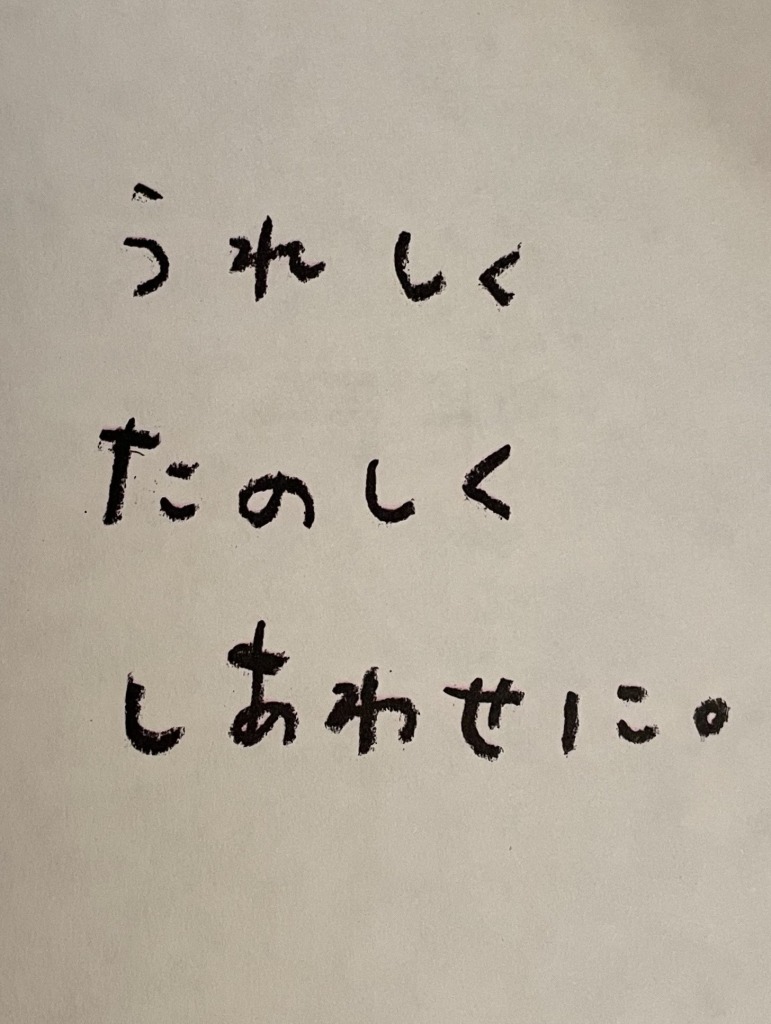 うれしく
たのしく
しあわせに。